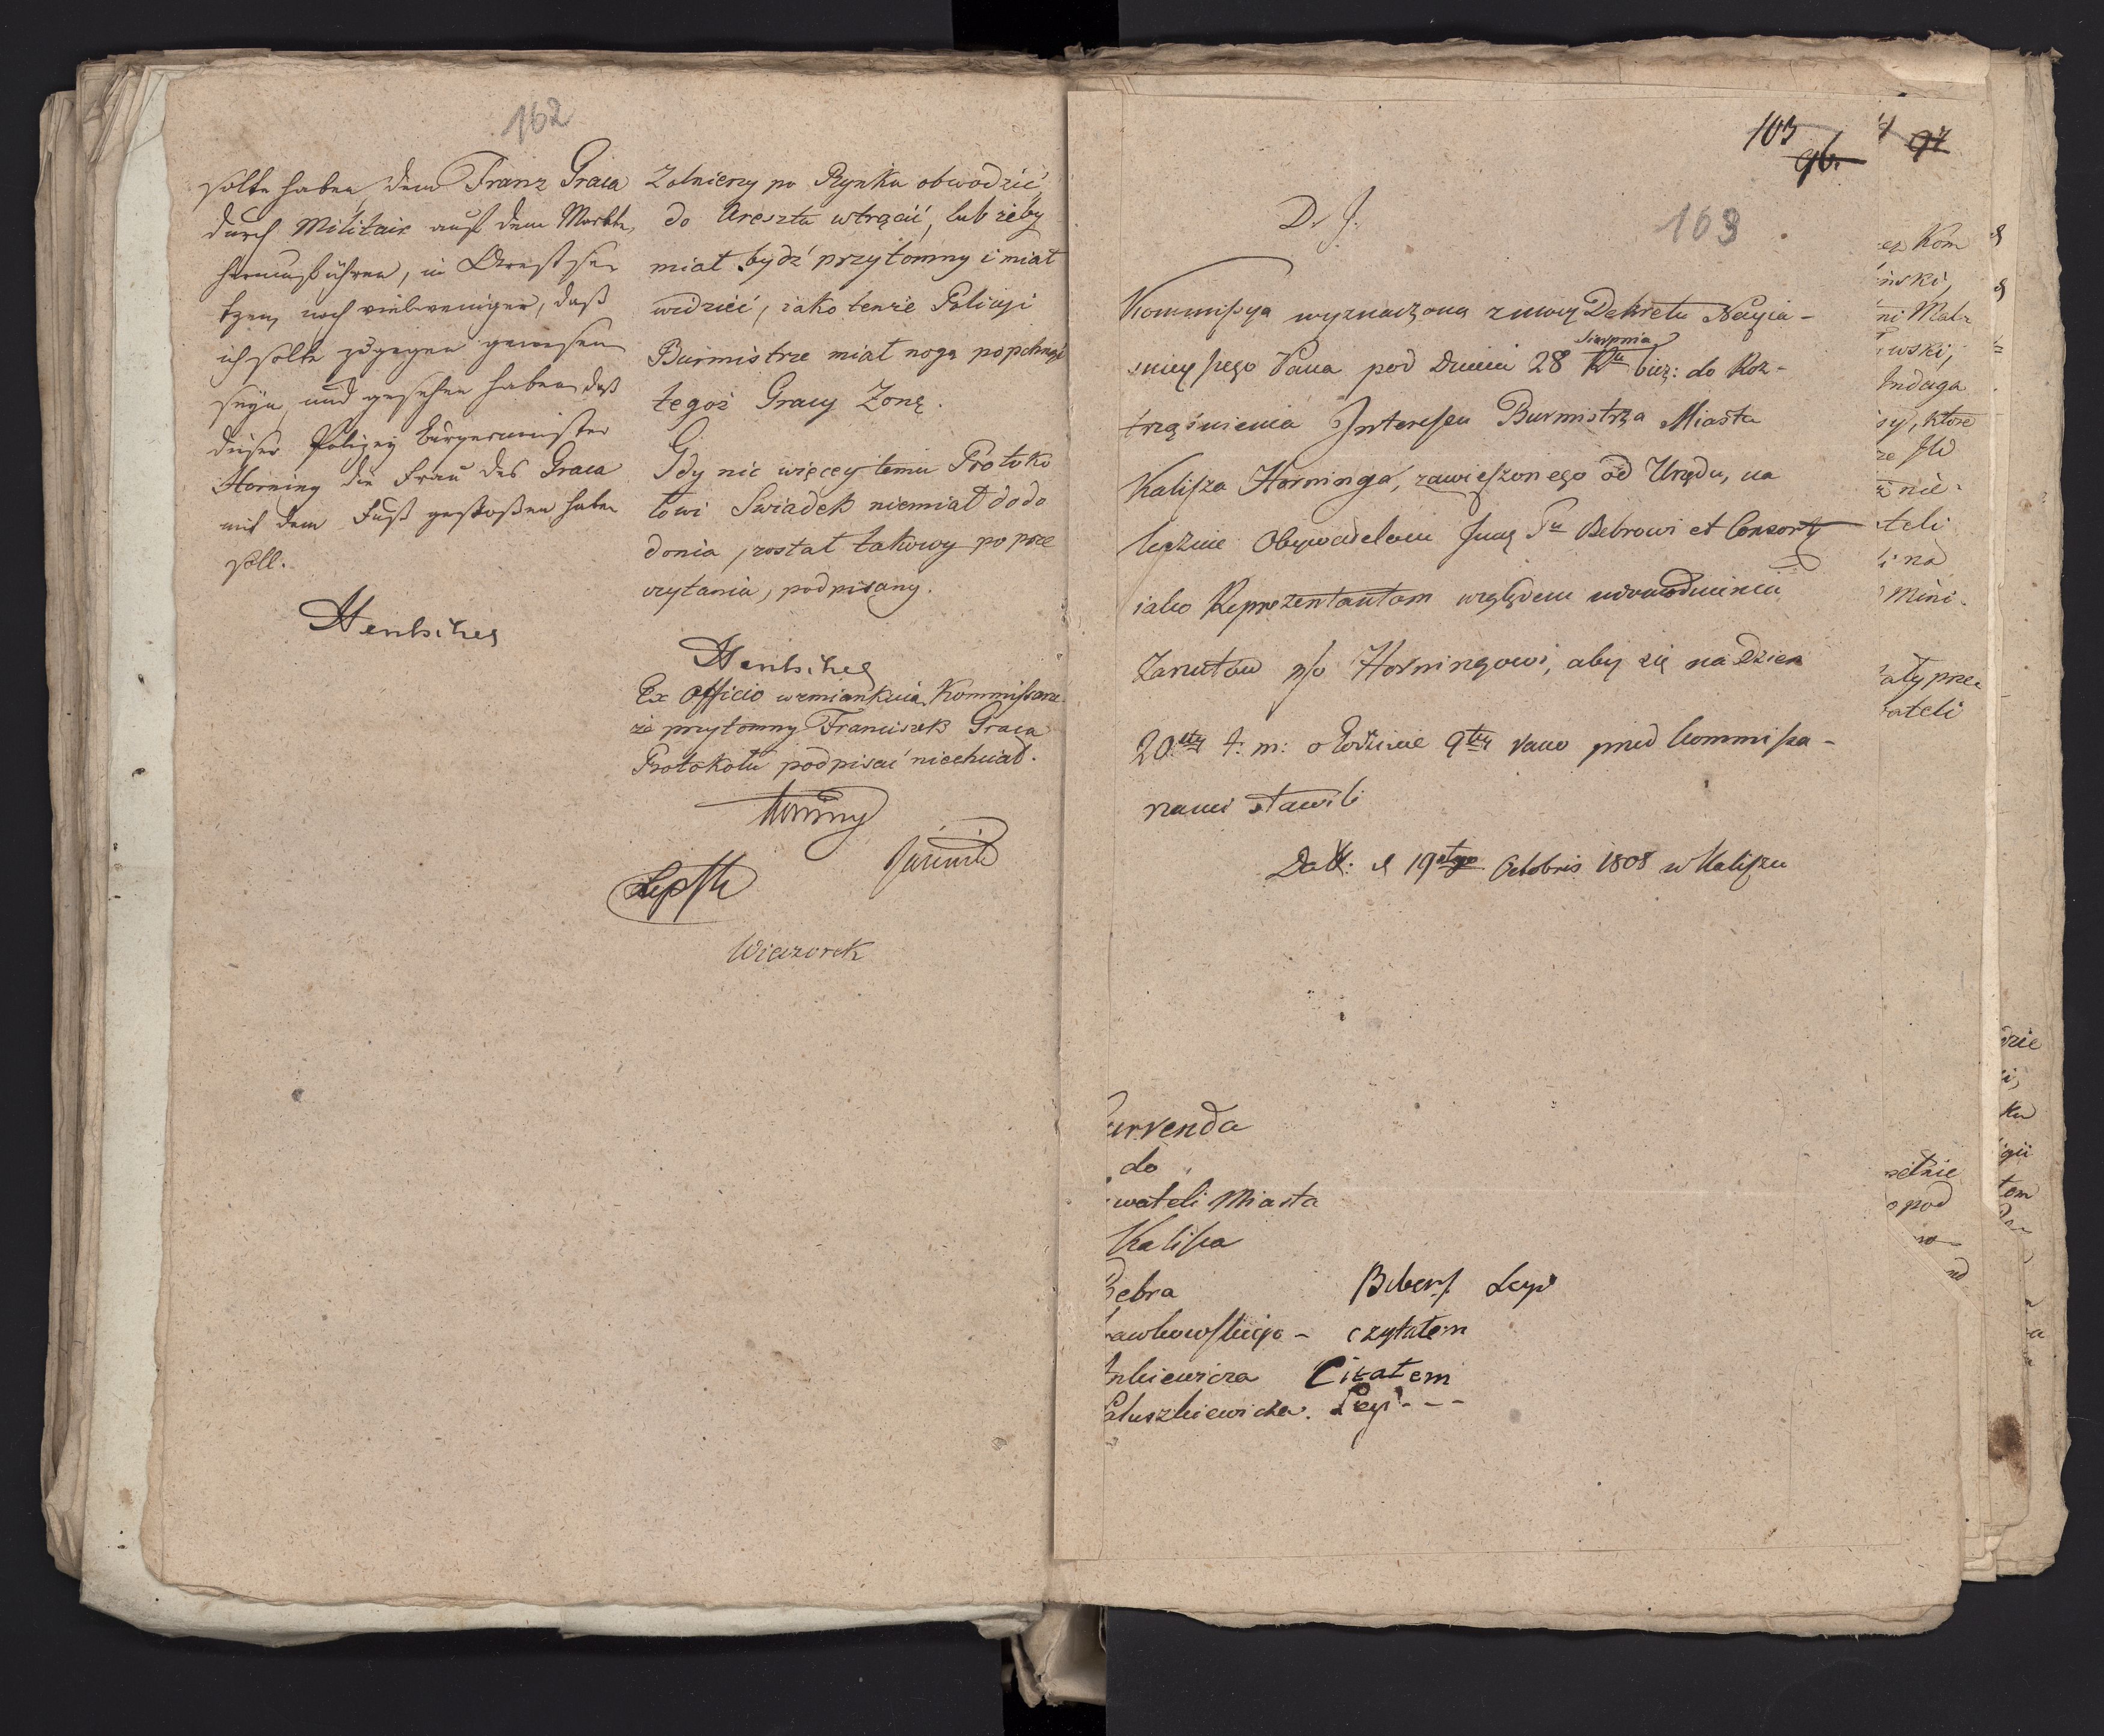 162
sollte haben, dem Franz Graca
durch Militair auf dem Markte
herumführen, in Arrest se-
tzen, noch vielweniger, daß
ich sollte zugegen gewesen
seyn, und gesehen haben, daß
dieser Polizey Bürgermeister
Horning die Frau des Graca
mit dem Fuß gestoßen haben
soll.
Hentschel
Zolnierzy po Rynku obwodzić,
do Aresztu wtrącić, lub żeby
miał bydź przytomny i miał
widzieć, iako tenże Policyi
Burmistrz miał nogą popchnąć
tegoż Gracy Zonę.
Gdy nic więcey temu Protoko
łowi Swiadek niemiał do do
donia, został takowy po prze
czytaniu, podpisany.
Hentschel
Ex Officio wzmiankuią Kommissarze
że przytomny Franciszek Graca
Protokołu podpisać niechciał.
Horning
Wieczorek
103
96.
163
D. J.
Kommissya wyznaczona z mocy Dekretu Nayia-
snieyszego Pana pod Dniem 28 Sierpnia r. bież: do Roz-
trząśnienia Interessu Burmistrza Miasta
Kalisza Horninga, zawieszonego od Urzędu, na
każnie Obywatelom Bebrowi et Consort
iako Reprezentantom względem udowodnienia
Zarzutów p/o Horningowi, aby się na Dzien
20sty t: m: o Godzinie 9tey rano przed Kommissa-
rzami stawili
Datt: d 19stego Octobris 1808 w Kaliszu
urrenda
do
wateli Miasta
Kalisza
Bebra
czytałem
nkiewicza Citałem
ałuszkiewicza.
97
ez Kom
inski,
ni Mal-
wski,
Indaga
sy, które
nie-
teli
na
Mini-
ały prze
ateli
etnie
o pod